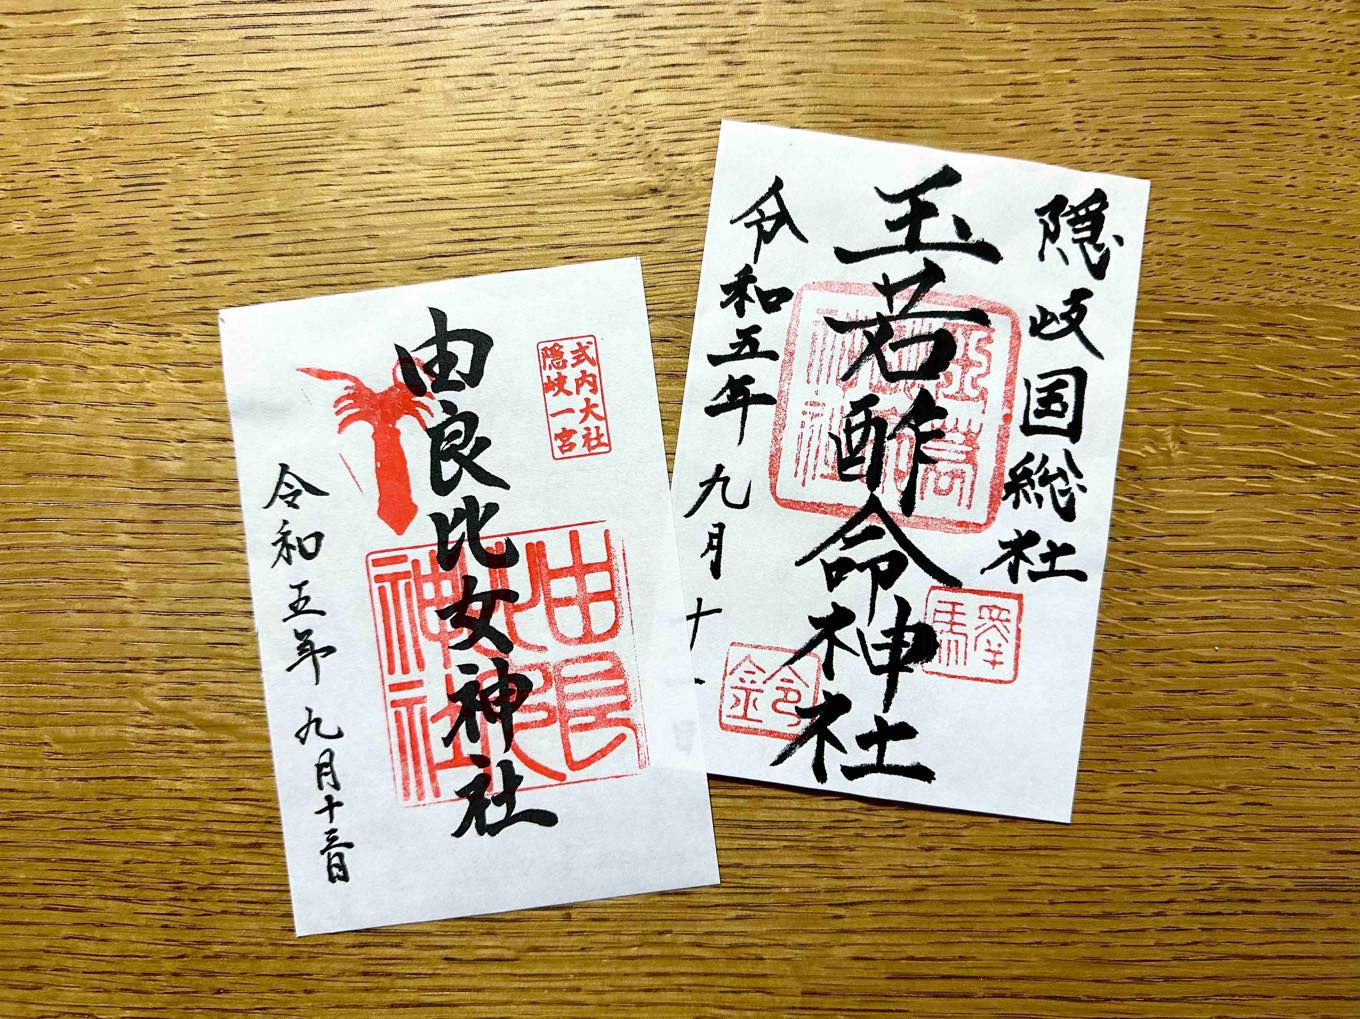 隠岐国総社
玉若酢命神社
令和五年九月十一
驛鈴
由良比女神社
式内大社
隠岐一宮
由良
神社
令和五年九月十三日